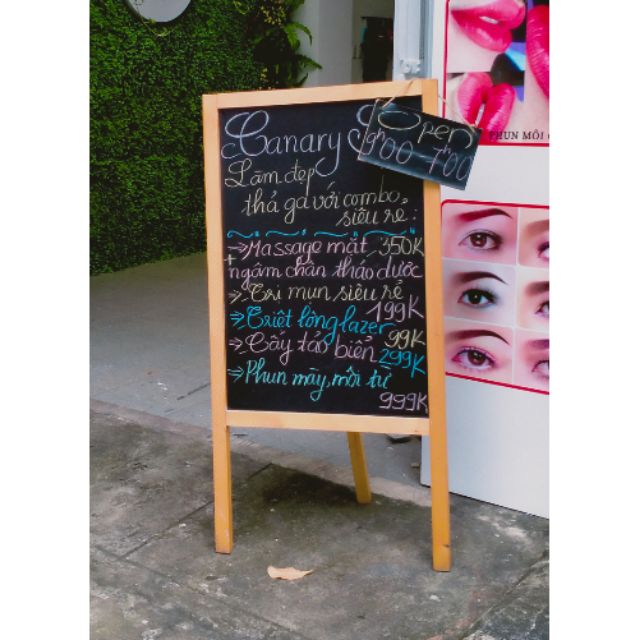 Canary
Open
9h00 - 7h00
Làm đẹp
thả ga với combo
siêu rẻ:
=> Massage mặt 350K
+ ngâm chân thảo dước
=> Trị mụn siêu rẻ
199K
=> Triệt lông lazer
99K
=> Cấy tảo biển 299K
=> Phun mày, môi từ
999K
PHUN MÔI